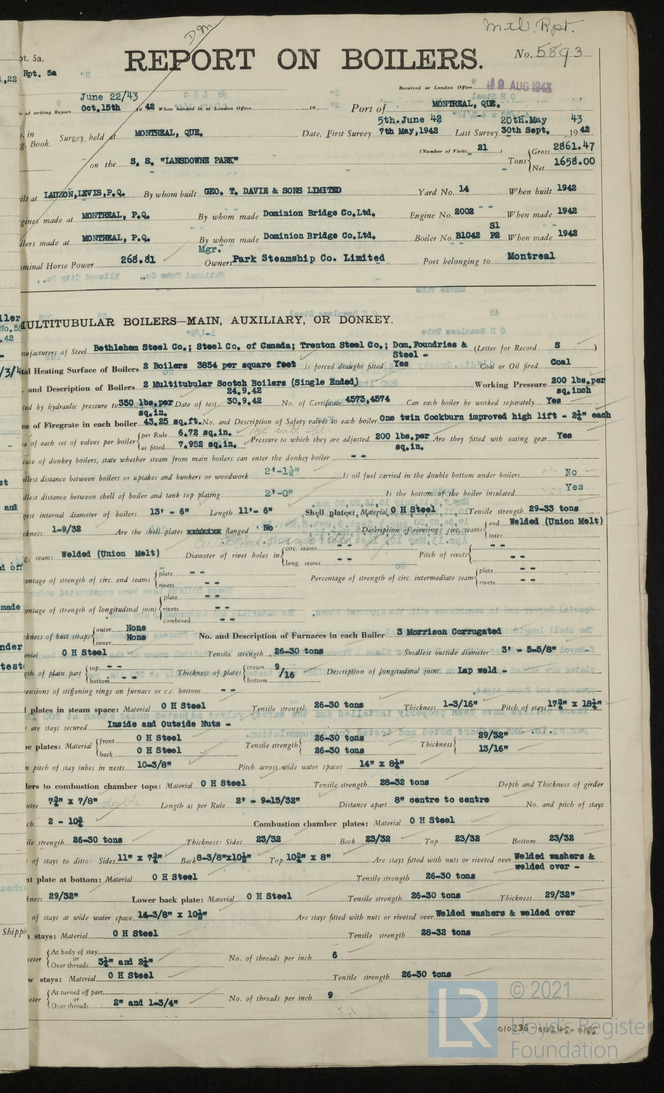 Mtl. Rpt.
Rpt. 5a
REPORT ON BOILERS.
No. 5893
Received at London Office 19 AUG 1943
June 22/43
of writing Report Oct.15th 42 When handed in at London Office Port of MONTREAL, QUE.
5th.June 42 20th.May 43
Survey held at MONTREAL, QUE. Date, First Survey 7th May,1942 Last Survey 30th Sept. 1942
(Number of Visits 21 Gross 2861.47
on the S. S. "LANSDOWNE PARK" Tons Net 1658.00
LAUZON,LEVIS,P.Q. By whom built GEO. T. DAVIE & SONS LIMITED Yard No. 14 When built 1942
made at MONTREAL, P.Q. By whom made Dominion Bridge Co.Ltd. Engine No. 2002 - - When made 1942
made at MONTREAL, P.Q. By whom made Dominion Bridge Co.Ltd. Boiler No. B1042 S1 P2 When made 1942
Horse Power 268.81 Mgr. Owners Park Steamship Co. Limited Port belonging to Montreal
MULTITUBULAR BOILERS—MAIN, AUXILIARY, OR DONKEY.
of Steel Bethlehem Steel Co.; Steel Co. of Canada; Trenton Steel Co.; Dom.Foundries & Steel - (Letter for Record S )
Heating Surface of Boilers 2 Boilers 3854 per square feet Is forced draught fitted Yes Coal or Oil fired Coal
and Description of Boilers 2 Multitubular Scotch Boilers (Single Ended) Working Pressure 200 lbs.per sq.inch
by hydraulic pressure to 350 lbs.per sq.in. Date of test 24.9.42 30.9.42 No. of Certificate 4573,4574 Can each boiler be worked separately Yes
of Firegrate in each boiler 43.25 sq.ft. No. and Description of Safety valves to each boiler One twin Cockburn improved high lift - 2½" each
of each set of valves per boiler per Rule 6.72 sq.in. as fitted 7.952 sq.in. Pressure to which they are adjusted 200 lbs.per sq.in. Are they fitted with easing gear Yes
of donkey boilers, state whether steam from main boilers can enter the donkey boiler - -
distance between boilers or uptakes and bunkers or woodwork 2'-1½" Is oil fuel carried in the double bottom under boilers No
distance between shell of boiler and tank top plating 2'-0" Is the bottom of the boiler insulated Yes
internal diameter of boilers 13' - 6" Length 11'- 6" Shell plates: Material O H Steel Tensile strength 29-33 tons
1-9/32 Are the shell plates flanged No Description of riveting: circ. seams end Welded (Union Melt) inter.
seams Welded (Union Melt) Diameter of rivet holes in circ. seams - - long. seams - - Pitch of rivets - -
of strength of circ. end seams plate - - rivets - - Percentage of strength of circ. intermediate seam plate - - rivets - -
of strength of longitudinal joint plate - - rivets - - combined - -
of butt straps outer None inner None No. and Description of Furnaces in each Boiler 3 Morrison Corrugated
O H Steel Tensile strength 26-30 tons Smallest outside diameter 3' - 5-5/8"
of plain part top - - bottom - - Thickness of plates crown bottom 9/16 Description of longitudinal joint Lap weld -
of stiffening rings on furnace or c.c. bottom - -
plates in steam space: Material O H Steel Tensile strength 26-30 tons Thickness 1-3/16" Pitch of stays 17¾" x 18¼"
are stays secured Inside and Outside Nuts -
plates: Material front O H Steel back O H Steel Tensile strength 26-30 tons 26-30 tons Thickness 29/32" 13/16"
pitch of stay tubes in nests 10-3/8" Pitch across wide water spaces 14" x 8¼"
to combustion chamber tops: Material O H Steel Tensile strength 28-32 tons Depth and Thickness of girder
7¾" x 7/8" double Length as per Rule 2' - 9-15/32" Distance apart 8" centre to centre No. and pitch of stays
2 - 10¾ Combustion chamber plates: Material O H Steel
strength 26-30 tons Thickness: Sides 23/32 Back 23/32 Top 23/32 Bottom 23/32
of stays to ditto: Sides 11" x 7¾" Back 8-3/8"x10½" Top 10¾" x 8" Are stays fitted with nuts or riveted over Welded washers & welded over -
plate at bottom: Material O H Steel Tensile strength 26-30 tons
29/32" Lower back plate: Material O H Steel Tensile strength 26-30 tons Thickness 29/32"
of stays at wide water space 14-3/8" x 10½" Are stays fitted with nuts or riveted over Welded washers & welded over
stays: Material O H Steel Tensile strength 28-32 tons
At body of stay or Over threads 3¼" and 2½" No. of threads per inch 6
stays: Material O H Steel Tensile strength 26-30 tons
At turned off part or Over threads 2" and 1-3/4" No. of threads per inch 9
LR © 2021
Lloyd's Register
Foundation